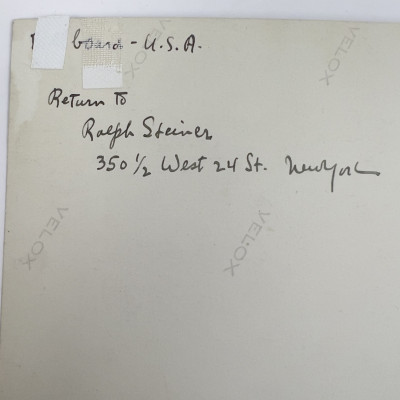 board - U.S.A.
Return to
Ralph Steiner
350 1/2 West 24 St. New York
VELOX
VELOX
VELOX
VELOX